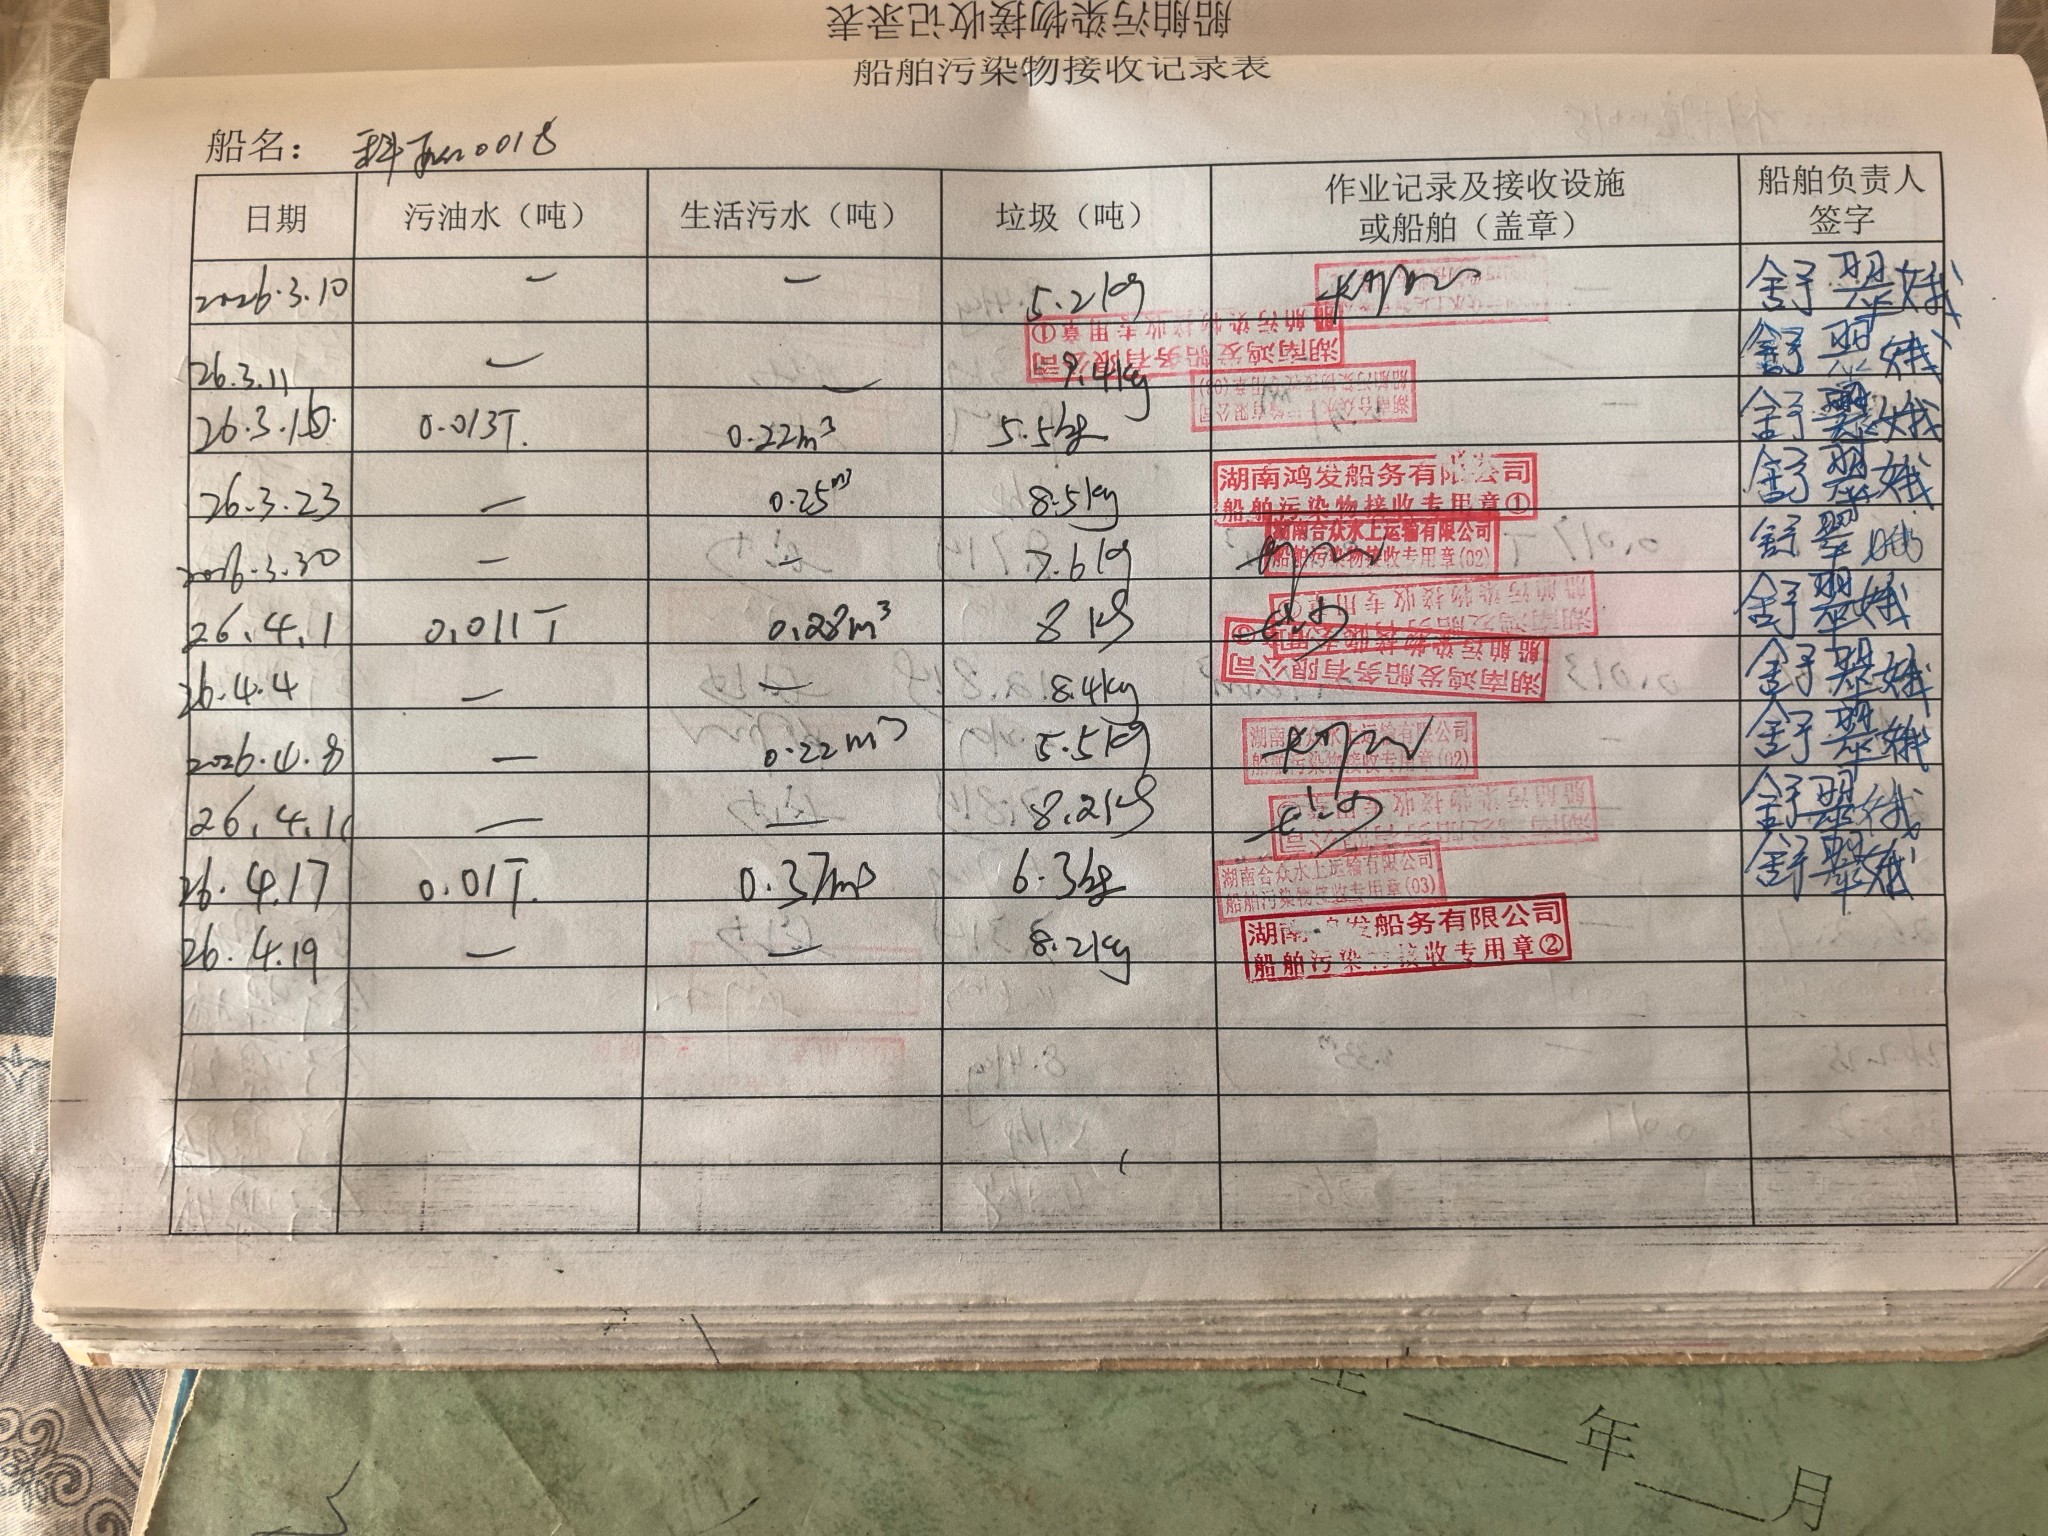 船舶污染物接收记录表
船舶污染物接收记录表
船名： 0018
日期 污油水（吨） 生活污水（吨） 垃圾（吨） 作业记录及接收设施或船舶（盖章） 船舶负责人签字
2026.3.10 — — 5.2kg 舒翠娥
湖南鸿发船务有限公司
船舶污染物接收专用章①
26.3.11 — — 9.4kg 舒翠娥
26.3.15 0.013T. 0.22m³ 5.5kg 舒翠娥
26.3.23 — 0.25m³ 8.5kg 湖南鸿发船务有限公司 舒翠娥
船舶污染物接收专用章①
2026.3.30 — — 7.6kg 湖南合众水上运输有限公司 舒翠娥
船舶污染物接收专用章(02)
26.4.1 0.011T 0.28m³ 8kg 舒翠娥
湖南鸿发船务有限公司
船舶污染物接收专用章①
26.4.4 — — 8.4kg 舒翠娥
2026.4.8 — 0.22m³ 5.5kg 湖南合众水上运输有限公司 舒翠娥
船舶污染物接收专用章(02)
26.4.11 — — 8.2kg 舒翠娥
26.4.17 0.01T. 0.37m³ 6.3kg 湖南合众水上运输有限公司 舒翠娥
船舶污染物接收专用章(03)
26.4.19 — — 8.2kg 湖南发船务有限公司
船舶污染接收专用章②
年 月